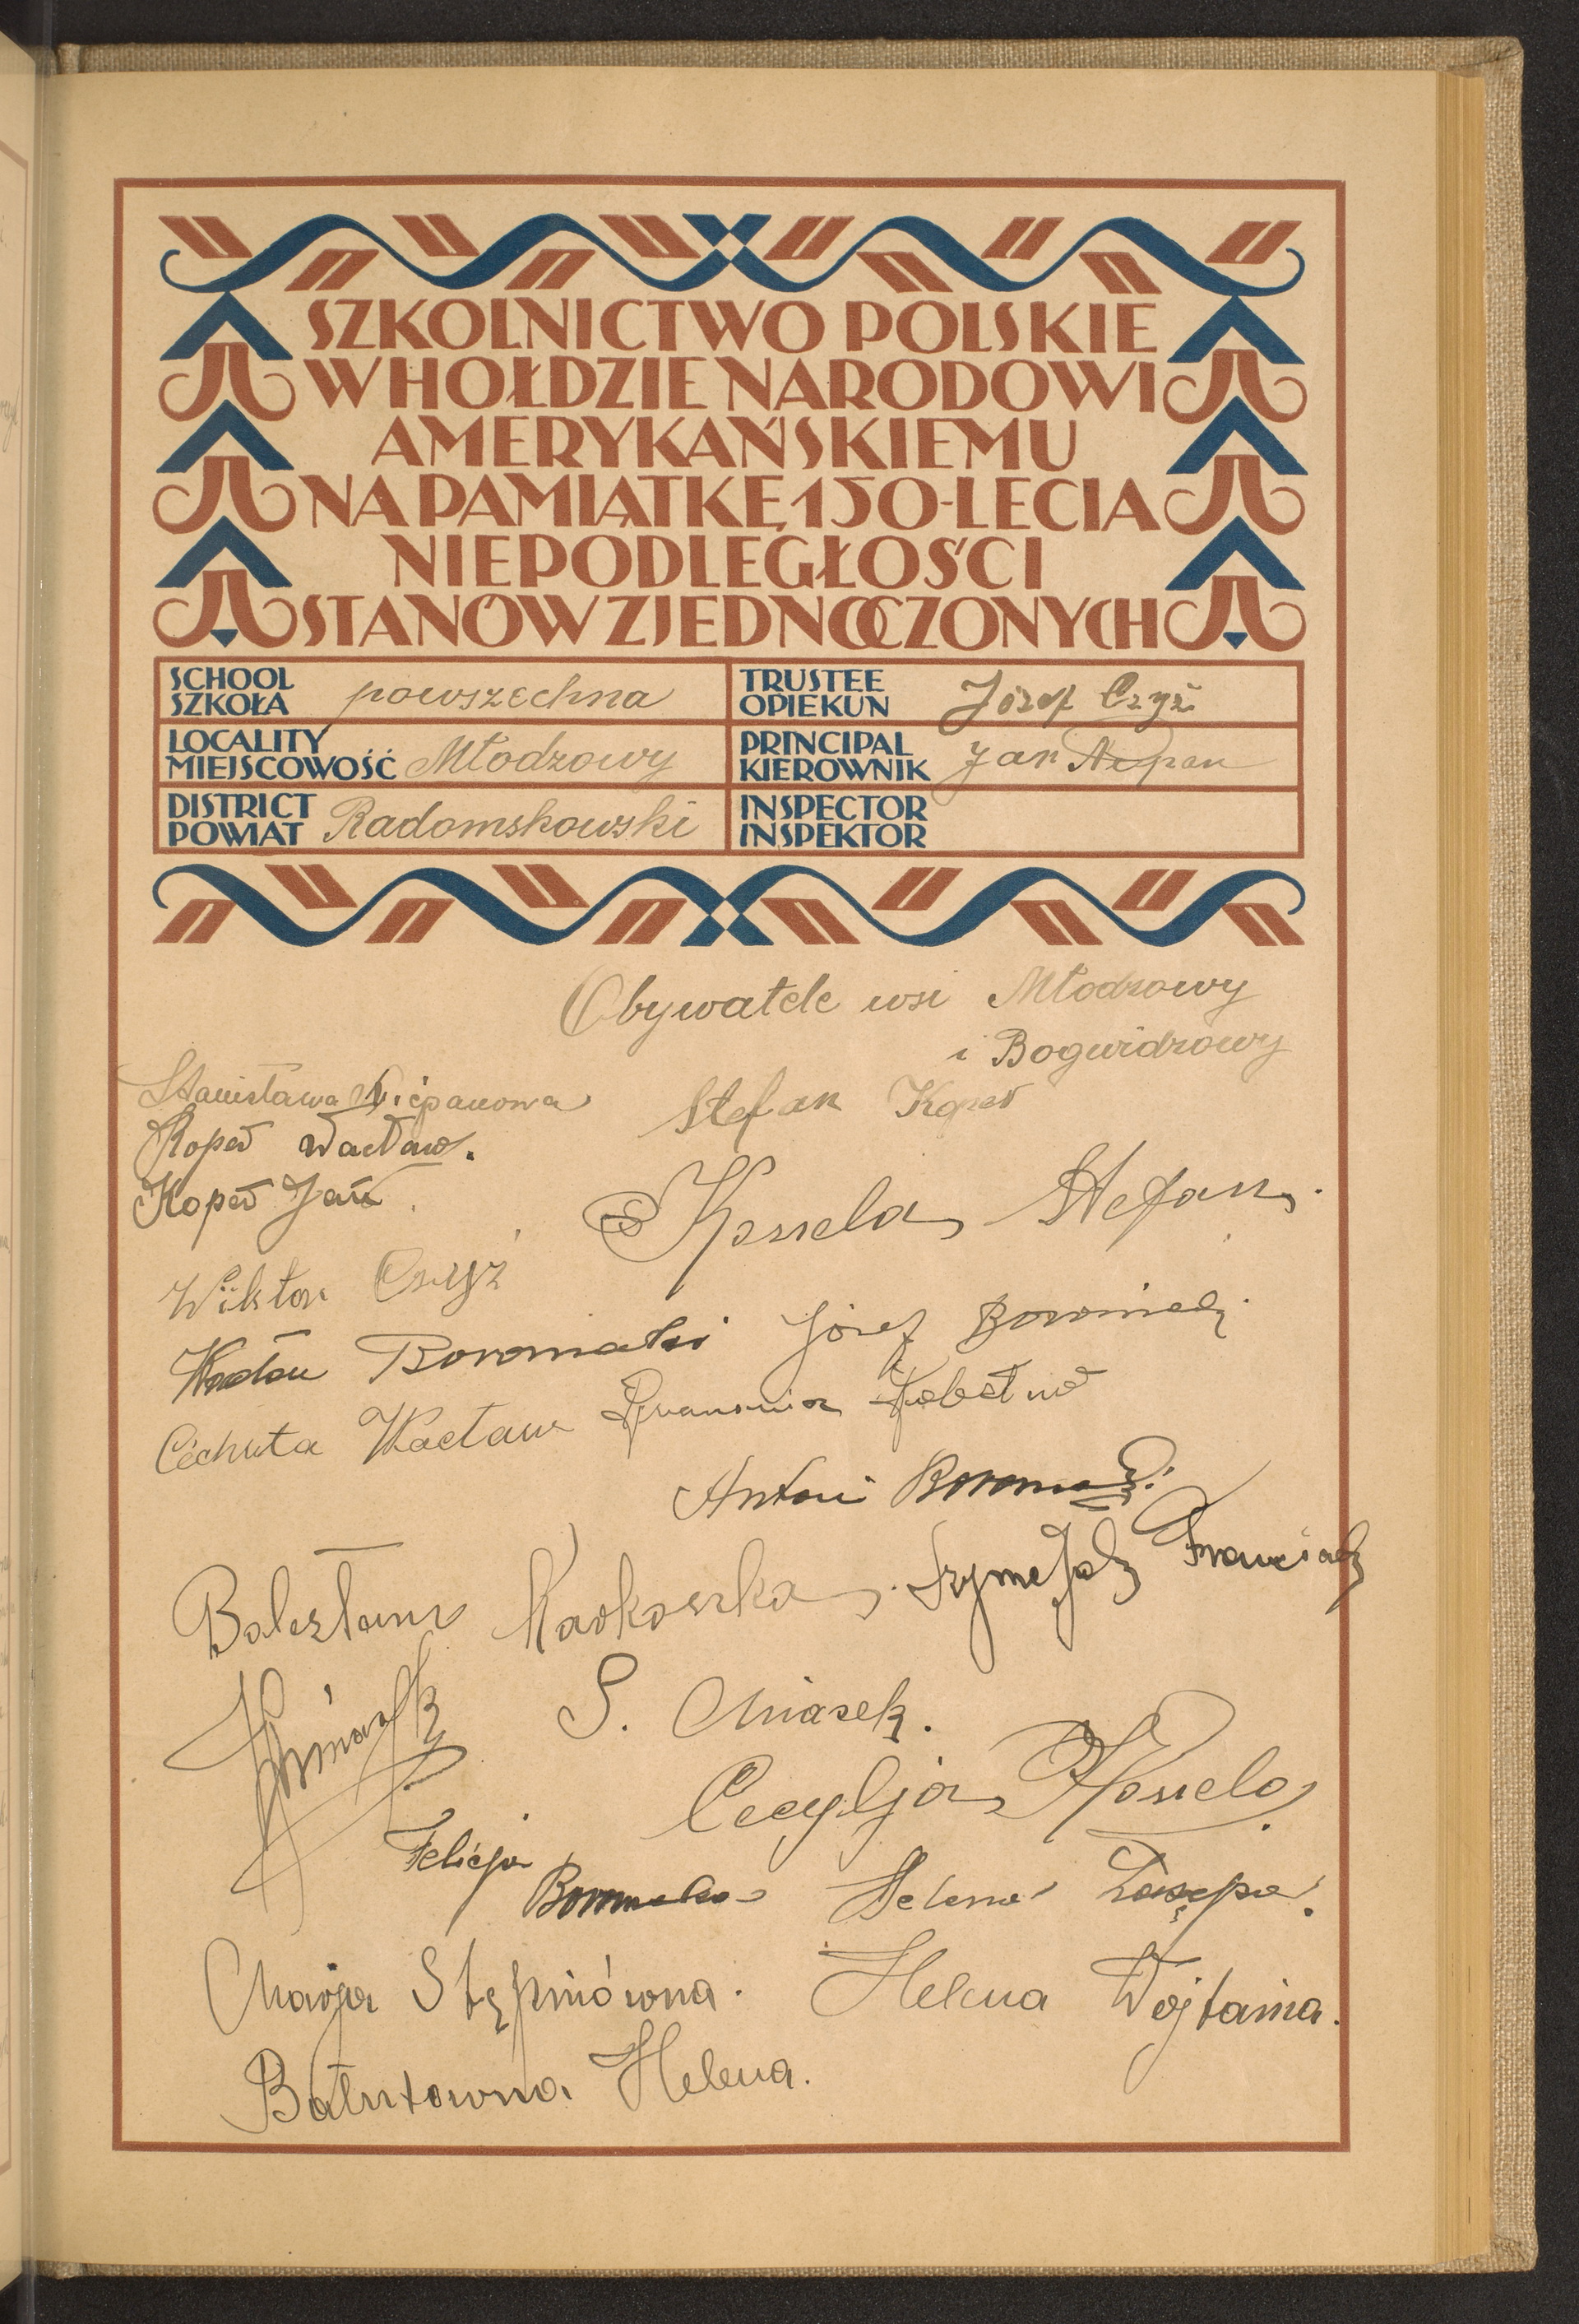 SZKOLNICTWO POLSKIE
W HOŁDZIE NARODOWI
AMERYKAŃSKIEMU
NA PAMIĄTKĘ 150-LECIA
NIEPODLEGŁOŚCI
STANÓW ZJEDNOCZONYCH
SCHOOL
SZKOŁA powszechna
TRUSTEE
OPIEKUN Józef Czyż
LOCALITY
MIEJSCOWOŚĆ Młodzowy
PRINCIPAL
KIEROWNIK Jan
DISTRICT
POWIAT Radomskowski
INSPECTOR
INSPEKTOR
Obywatele wsi Młodzowy
i Bogwidzowy
Stanisława
Stefan Kopeć
Kopeć Wacław.
Kopeć Jan.
Kossela Stefan.
Wiktor Czyż
Józef
Cichuta Wacław
Antoni
Bolesław Karkoszka.
S. Miasek.
Cecylja Kossela.
Felicja
Helena
Marja Stępniówna.
Helena Wojtania.
Bałutowna Helena.